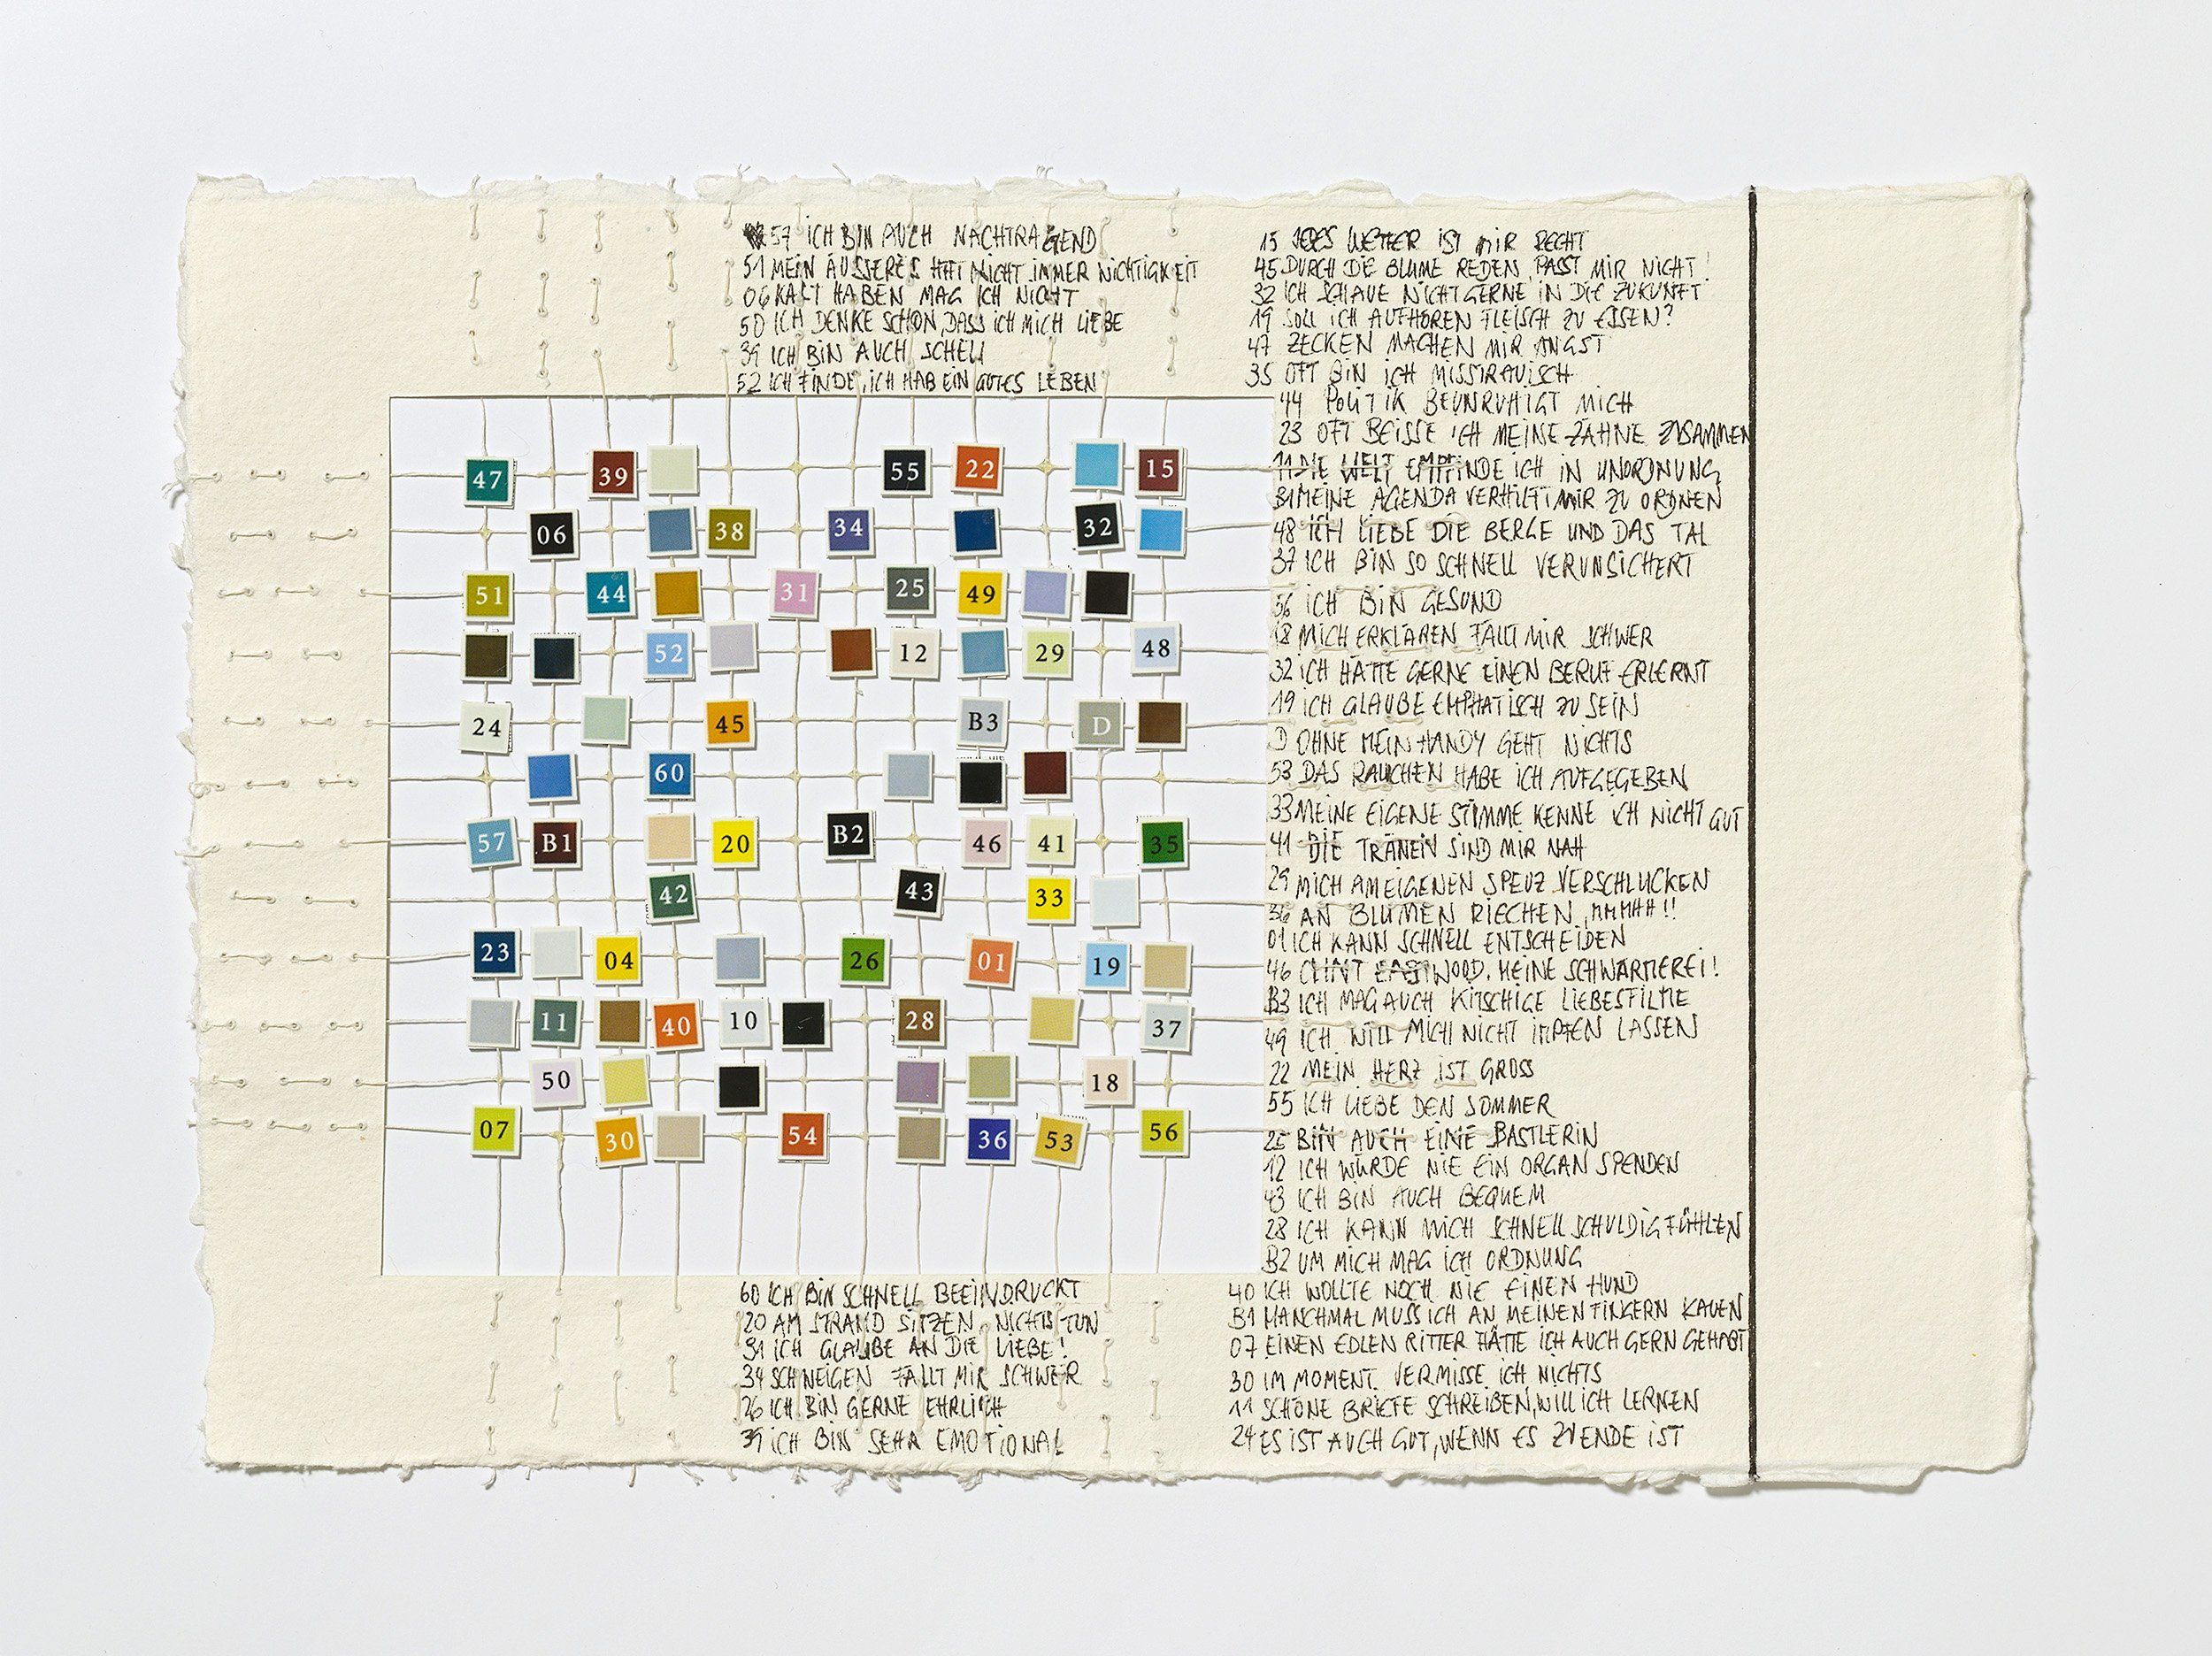 57 ICH BIN AUCH NACHTRAGEND
51 MEIN ÄUSSERES HAT NICHT IMMER NICHTIGKEIT
06 KALT HABEN MAG ICH NICHT
50 ICH DENKE SCHON, DASS ICH MICH LIEBE
39 ICH BIN AUCH SCHELL
52 ICH FINDE, ICH HAB EIN GUTES LEBEN
15 JEDES WETTER IST MIR RECHT
45 DURCH DIE BLUME REDEN PASST MIR NICHT!
32 ICH SCHAUE NICHT GERNE IN DIE ZUKUNFT
19 SOLL ICH AUFHÖREN FLEISCH ZU ESSEN?
47 ZECKEN MACHEN MIR ANGST
35 OFT BIN ICH MISSTRAUISCH
44 POLITIK BEUNRUHIGT MICH
23 OFT BEISSE ICH MEINE ZÄHNE ZUSAMMEN
11 DIE WELT EMPFINDE ICH IN UNORDNUNG
31 MEINE AGENDA VERHILFT MIR ZU ORDNEN
48 ICH LIEBE DIE BERGE UND DAS TAL
37 ICH BIN SO SCHNELL VERUNSICHERT
56 ICH BIN GESUND
18 MICH ERKLÄREN FÄLLT MIR SCHWER
32 ICH HÄTTE GERNE EINEN BERUF ERLERNT
19 ICH GLAUBE EMPHATISCH ZU SEIN
D OHNE MEIN HANDY GEHT NICHTS
53 DAS RAUCHEN HABE ICH AUFGEGEBEN
33 MEINE EIGENE STIMME KENNE ICH NICHT GUT
41 DIE TRÄNEN SIND MIR NAH
29 MICH AM EIGENEN SPEUZ VERSCHLUCKEN
36 AN BLUMEN RIECHEN, MMMHH!!
01 ICH KANN SCHNELL ENTSCHEIDEN
46 CLINT EASTWOOD. MEINE SCHWÄRMEREI!
B3 ICH MAG AUCH KITSCHIGE LIEBESFILME
49 ICH WILL MICH NICHT IMPFEN LASSEN
22 MEIN HERZ IST GROSS
55 ICH LIEBE DEN SOMMER
25 BIN AUCH EINE BASTLERIN
12 ICH WÜRDE NIE EIN ORGAN SPENDEN
43 ICH BIN AUCH BEQUEM
28 ICH KANN MICH SCHNELL SCHULDIG FÜHLEN
B2 UM MICH MAG ICH ORDNUNG
40 ICH WOLLTE NOCH NIE EINEN HUND
B1 MANCHMAL MUSS ICH AN MEINEN FINGERN KAUEN
07 EINEN EDLEN RITTER HÄTTE ICH AUCH GERN GEHABT
30 IM MOMENT VERMISSE ICH NICHTS
11 SCHÖNE BRIEFE SCHREIBEN, WILL ICH LERNEN
24 ES IST AUCH GUT, WENN ES ZUENDE IST
47 39 55 22 15
06 38 34 32
51 44 31 25 49
52 12 29 48
24 45 B3 D
60
57 B1 20 B2 46 41 35
42 43 33
23 04 26 01 19
11 40 10 28 37
50 18
07 30 54 36 53 56
60 ICH BIN SCHNELL BEEINDRUCKT
20 AM STRAND SITZEN, NICHTS TUN
31 ICH GLAUBE AN DIE LIEBE!
34 SCHWEIGEN FÄLLT MIR SCHWER
26 ICH BIN GERNE EHRLICH
39 ICH BIN SEHR EMOTIONAL